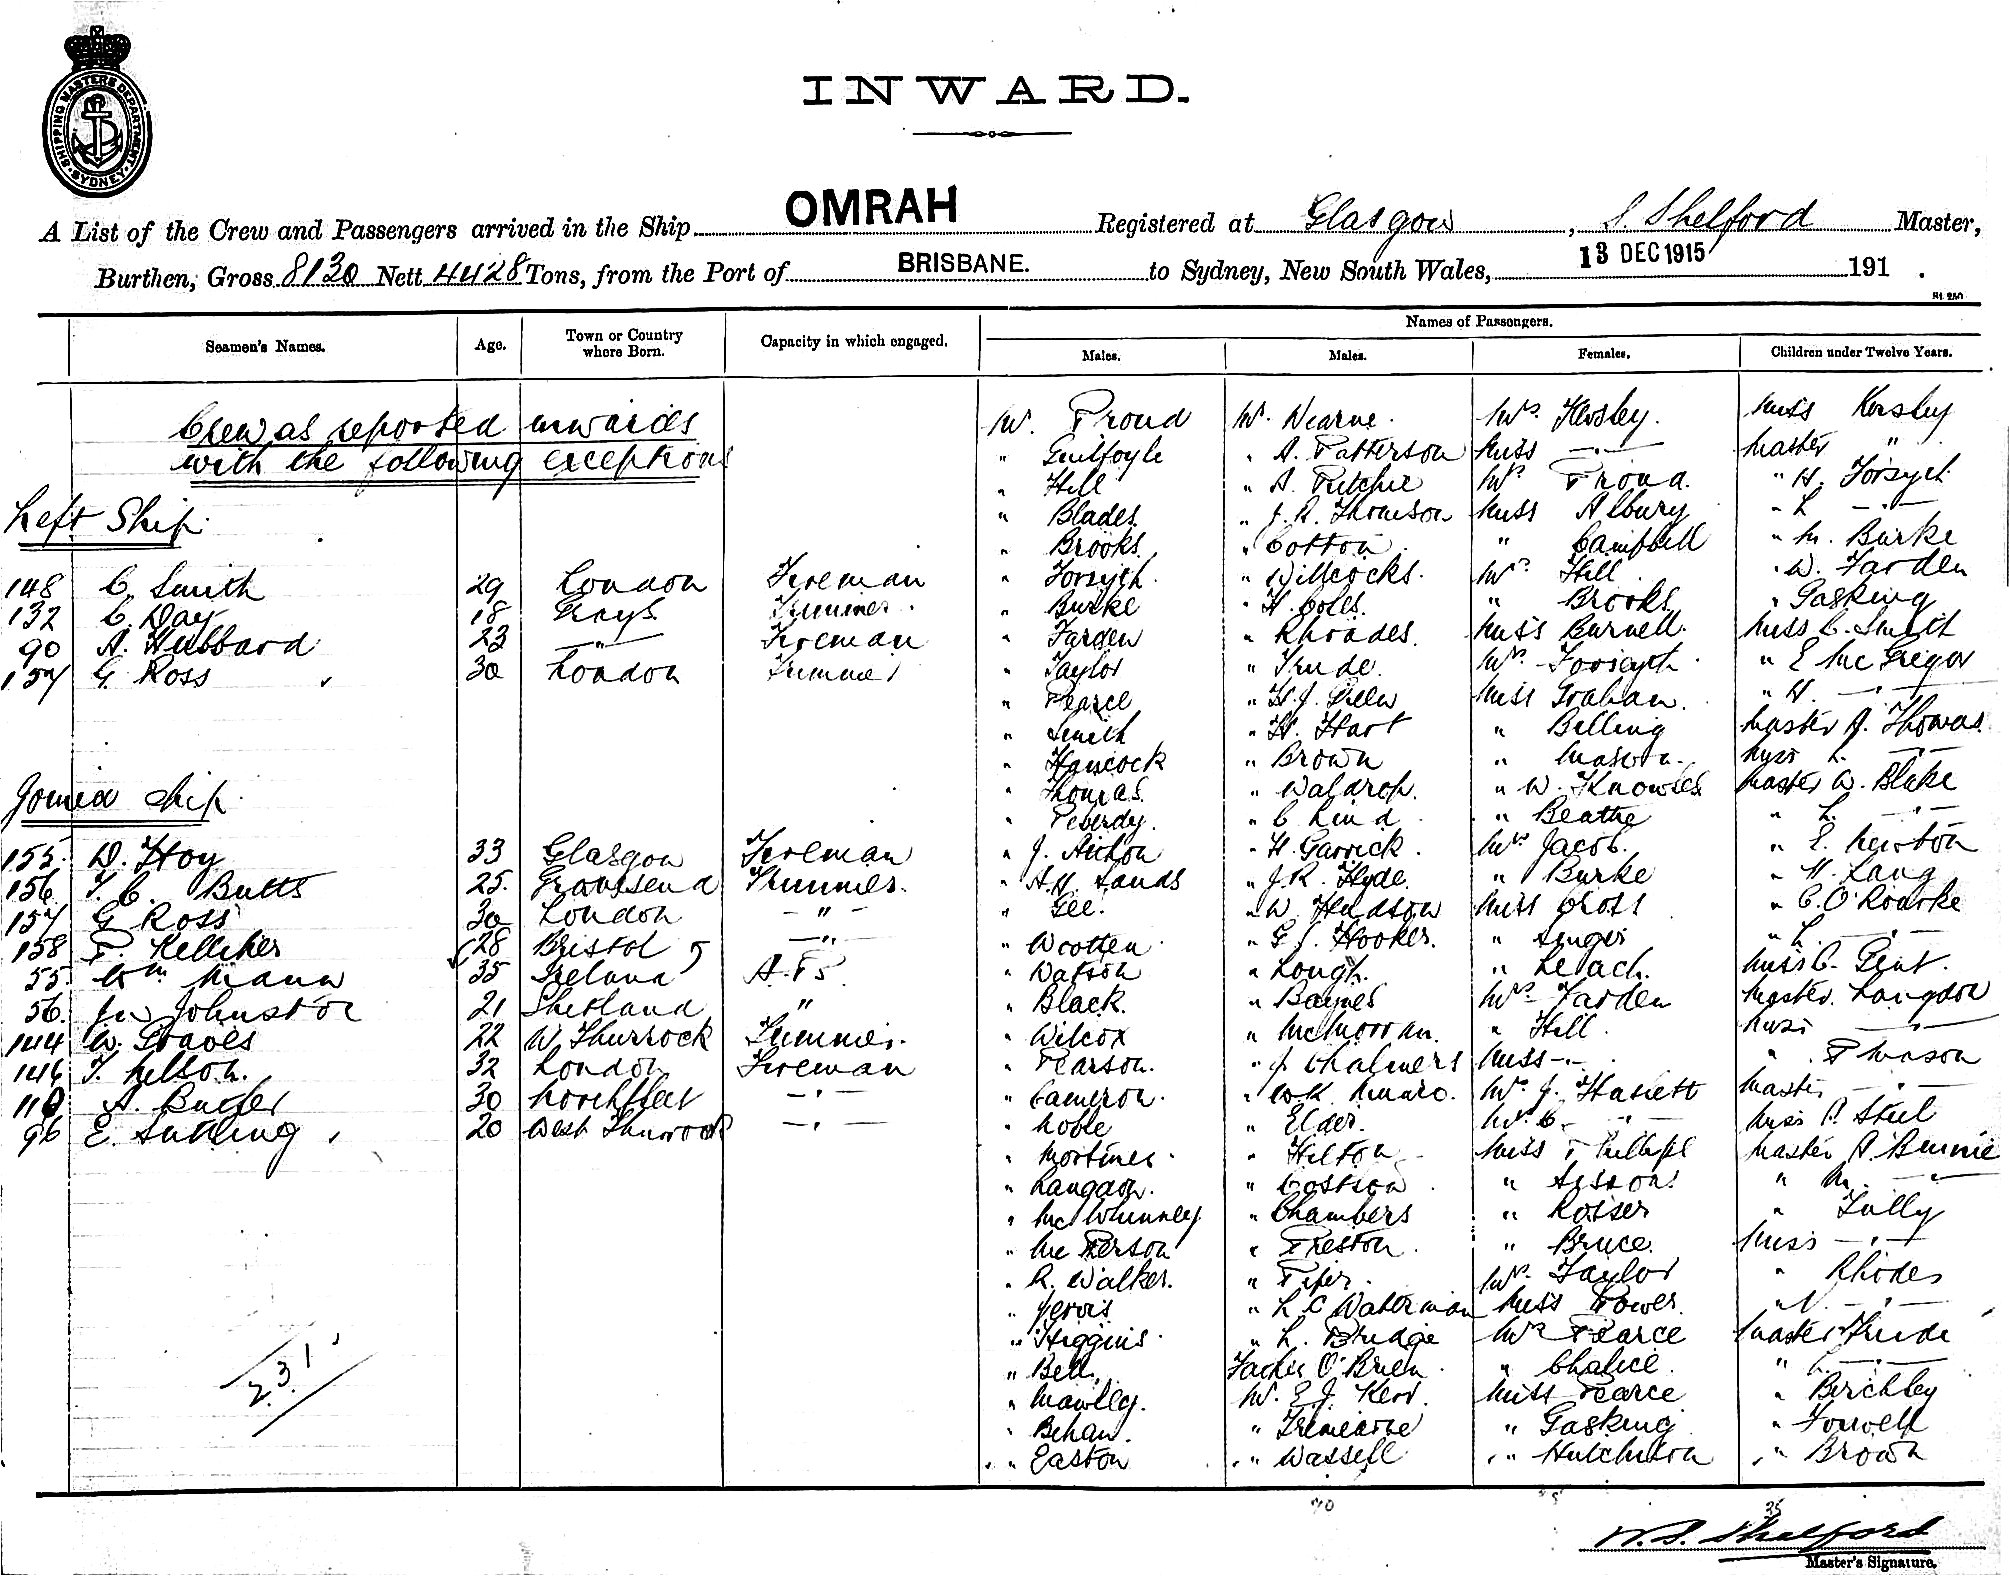 SHIPPING MASTERS DEPARTMENT
SYDNEY
INWARD.
A List of the Crew and Passengers arrived in the Ship OMRAH Registered at Glasgow, S. Shelford Master,
Burthen, Gross 8130 Nett 4428 Tons, from the Port of BRISBANE. to Sydney, New South Wales, 13 DEC 1915 191 .
Names of Passengers.
Seamen's Names. Age. Town or Country where Born. Capacity in which engaged. Males. Males. Females. Children under Twelve Years.
Crew as reported inwards
with the following exceptions
Left Ship
148 C. Smith 29 London Fireman
132 C. Day 18 Grays Trimmer
90 A. Hubbard 23 —"— Fireman
157 G. Ross 30 London Trimmer
Joined Ship
155 D. Hoy 33 Glasgow Fireman
156 T. C. Butts 25 Gravesend Trimmer
157 G Ross 30 London —"—
158 P. Kelliher 28 Bristol —"—
55 Wm Mann 35 Ireland A.B.
56 Jn Johnston 21 Shetland "
144 W. Graves 22 W. Thurrock Trimmer
146 T. Nelson 32 London Fireman
110 A. Butler 30 Northfleet —"—
96 E. 20 West Thurrock —"—
231
Mr. Proud
" Guilfoyle
" Hill
" Blades
" Brooks
" Forsyth
" Burke
" Farden
" Taylor
" Pearce
" Smith
" Hancock
" Thomas
" Peverdy
" J. Aitchon
" A.H. Sands
" Gee
" Wootten
" Watson
" Black
" Wilcox
" Pearson
" Cameron
" Noble
" Mortimer
" Langdon
" McWhinney
" McPherson
" R. Walker
" Jervis
" Higgins
" Bell
" Mawlly
" Behan
" Easton
Mr. Hearne
" A. Patterson
" A. Pitchie
" J. R. Thomson
" Cotton
" Willcocks
" H. Coles
" Rhoades
" Trude
" H. J. Green
" H. Hart
" Brown
" Waldron
" C Lind
" H. Garrick
" J. R. Hyde
" W Hudson
" G. J. Hooker
" Lough
" Baynes
" McMorran
" J Chalmers
" W.K. Munro
" Elder
" Hilton
" Costson
" Chambers
" Preston
" Piper
" L C Waterman
" L. Bridge
Father O'Brien
Mr. E. J. Kerr
" Tremearne
" Wassell
Mrs. Kersley
Miss —"—
Mrs. Proud
Miss Albury
" Campbell
Mrs. Hill
" Brooks
Miss Burnell
Mrs. Forsyth
Miss Graham
" Billing
" Mason
" W. Knowles
" Beathe
Mrs. Jacob
" Burke
Miss Cross
" Singer
" Leach
Mrs. Farden
" Hill
Miss —"—
Mrs. J. Haslett
Mrs. C. —"—
Miss Phillips
" Sisson
" Rosser
" Bruce
Mrs. Taylor
Miss Power
Mrs. Pearce
" Chalice
Miss Pearce
" Gasking
" Hutchison
Miss Kersley
Master "
" H. Forsyth
" L —"—
" M. Burke
" W. Farden
" Gasking
Miss C. Smith
" E McGregor
" H. —"—
Master A. Thomas
Miss L. —"—
Master W. Blake
" L. —"—
" E. Newton
" H. Lang
" C. O'Rourke
" L. —"—
Miss C. Gent
Master Langdon
Miss —"—
" P Mason
Master —"—
Miss P. Steel
Master A. Binnie
" M. —"—
" Tully
Miss —"—
" Rhodes
" V. —"—
Master Trude
" C. —"—
" Birchley
" Forwell
" Brown
35
W. S. Shelford
Master's Signature.